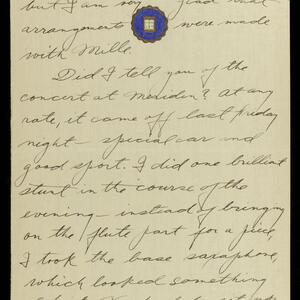 but I am so glad that
arrangements were made
with Mille.
Did I tell you of the
concert at Meriden? At any
rate, it came off last Friday
night – special car and
good sport. I did one brilliant
stunt in the course of the
evening – instead of bringing
on the flute part for a piece,
I took the base saxaphone,
which looked something